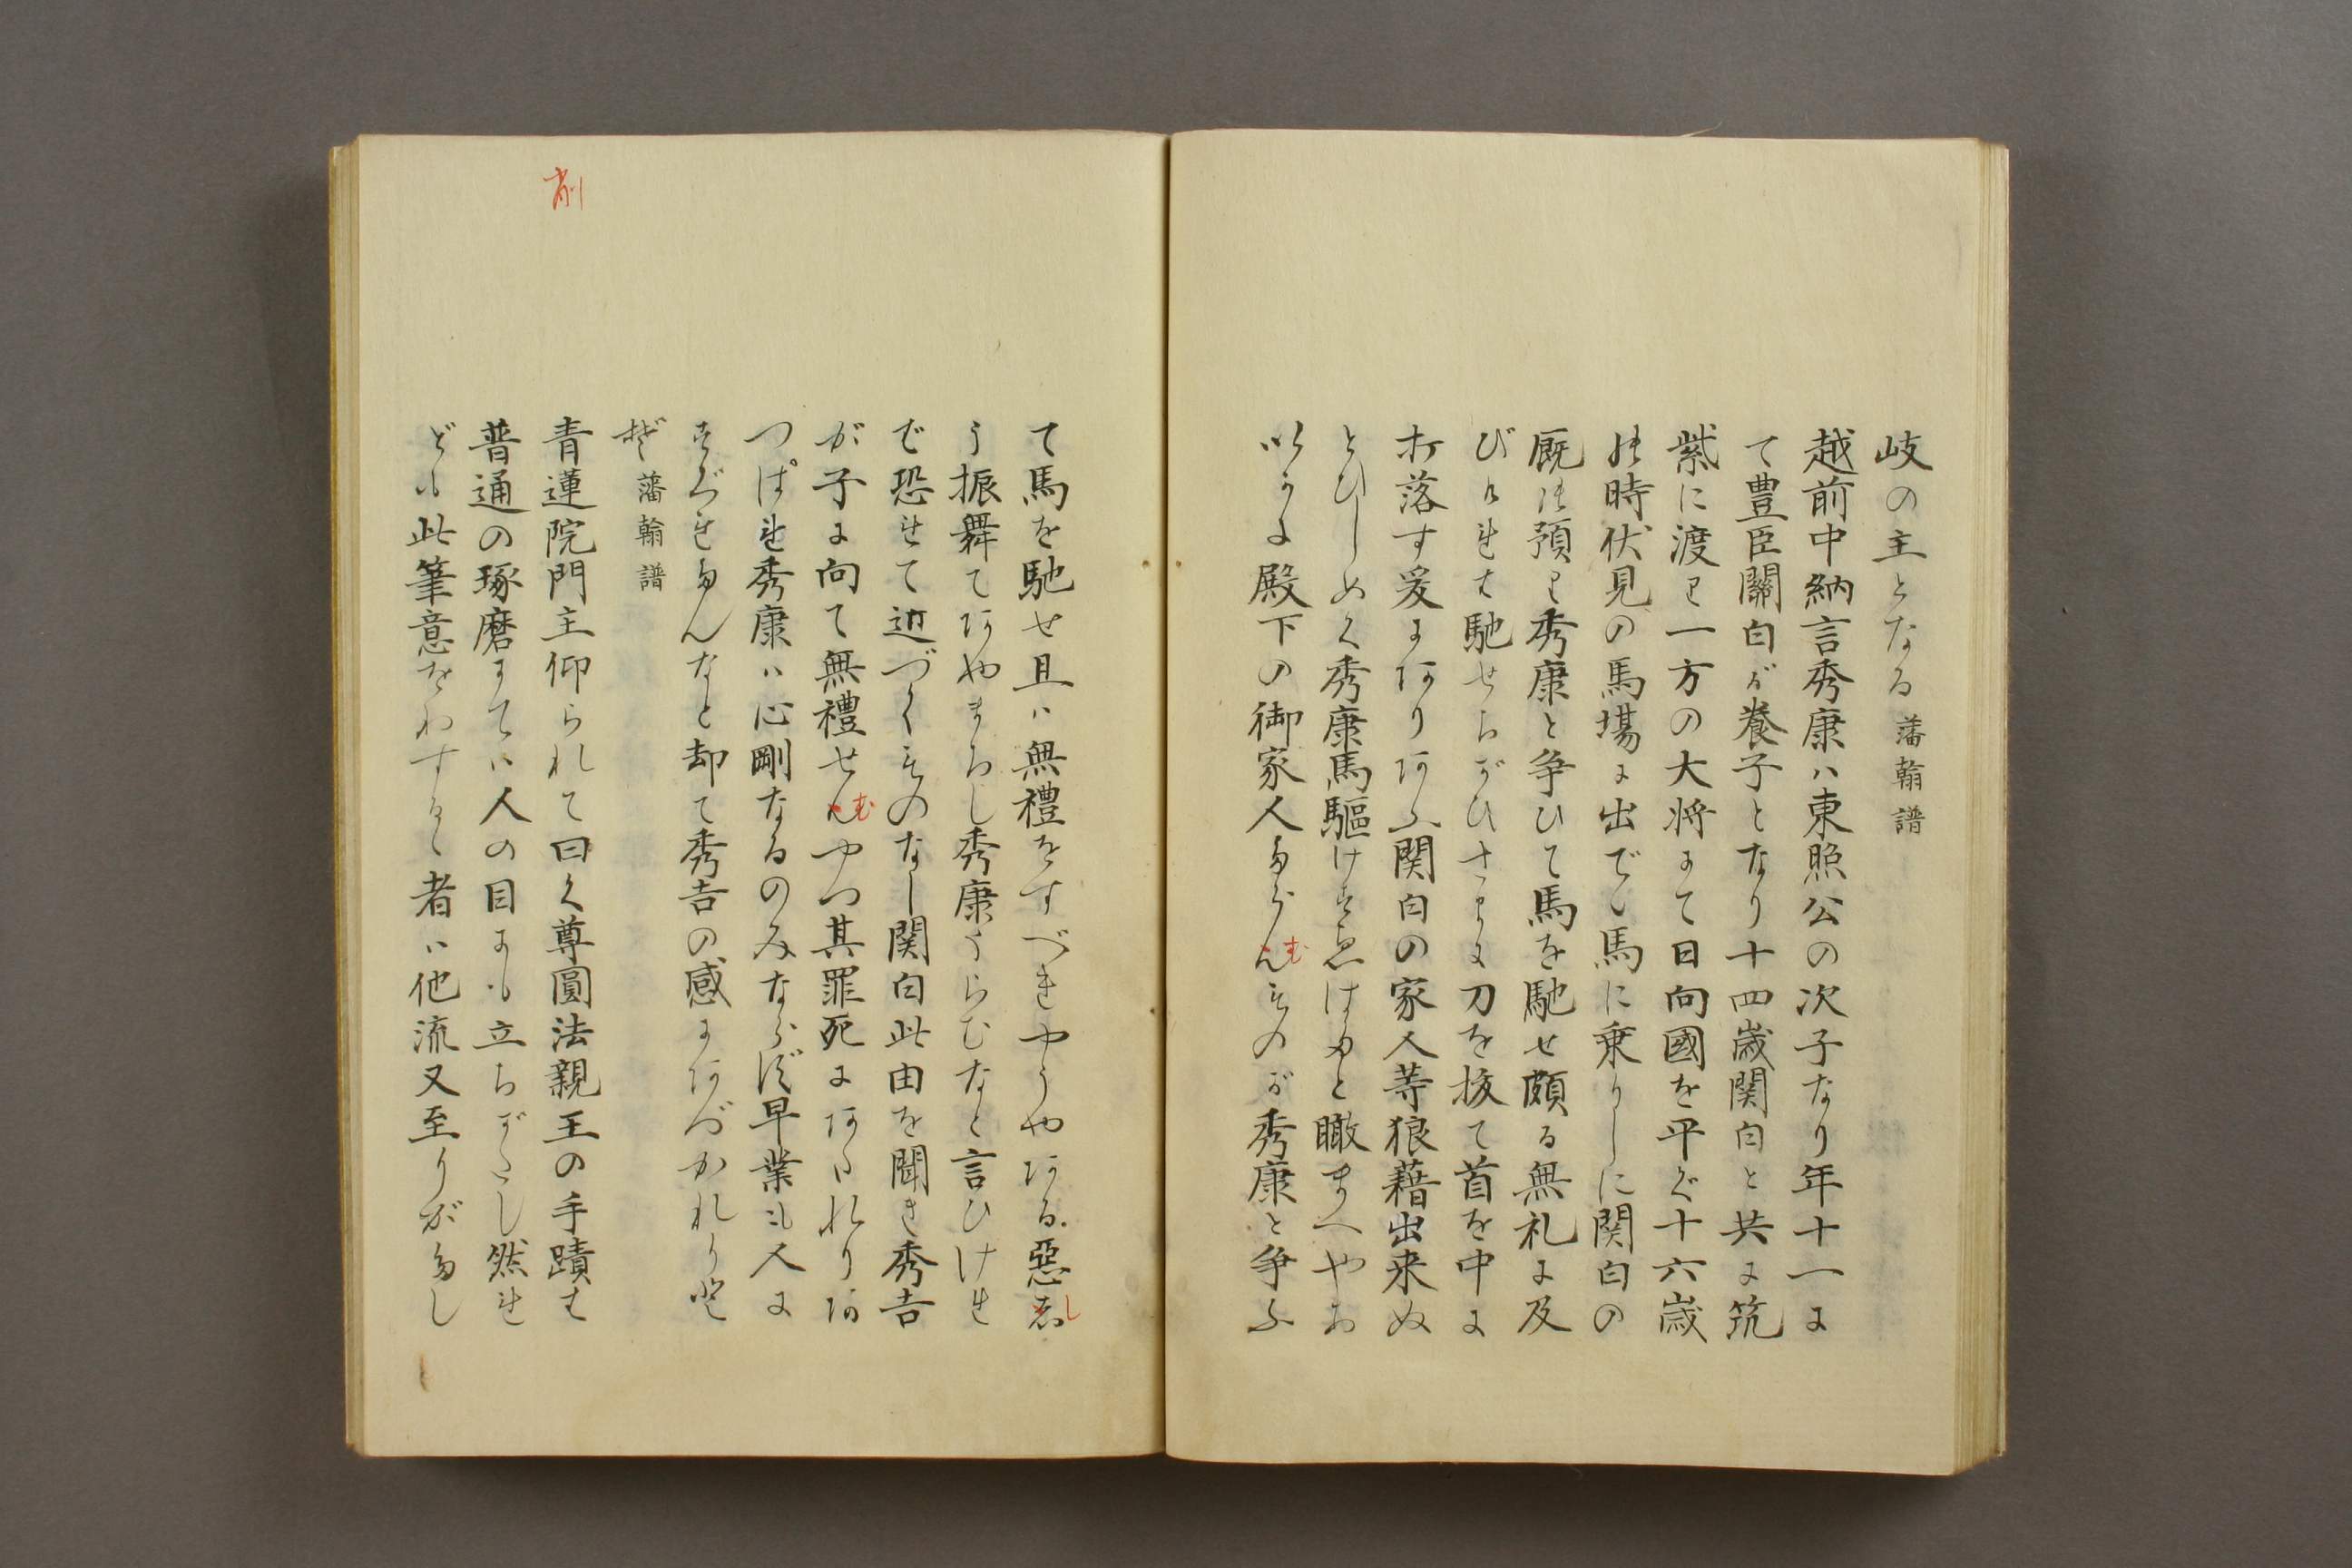 岐の主となる 藩翰譜
越前中納言秀康ハ東照公の次子なり年十一に
て豊臣關白が養子となり十四歳関白と共に筑
紫に渡り一方の大将にて日向國を平ぐ十六歳
の時伏見の馬場に出で馬に乗りしに関白の
厩の預り秀康と争ひて馬を馳せ頗る無礼に及
びけれは馳せちがひさまに刀を抜て首を中に
打落す爰にありあふ関白の家人等狼藉出来ぬ
とひしめく秀康馬驅けすゑはたと瞰まへやお
いかに殿下の御家人ならんむものが秀康と争ふ
て馬を馳せ且ハ無禮をすべきやうやある惡志し
う振舞てあやまちし秀康うらむなと言ひけれ
ど恐れて近づくものなし関白此由を聞き秀吉
が子に向て無禮せんむやつ其罪死にあたれりあ
つぱれ秀康ハ心剛なるのみならず早業も人に
すぐれたんなと却て秀吉の感にあづかれりと
ぞ 藩翰譜
削
青蓮院門主仰られて曰く尊圓法親王の手蹟は
普通の琢磨にてハ人の目にも立ちがたし然れ
ども此筆意をわするゝ者ハ他流又至りがたし